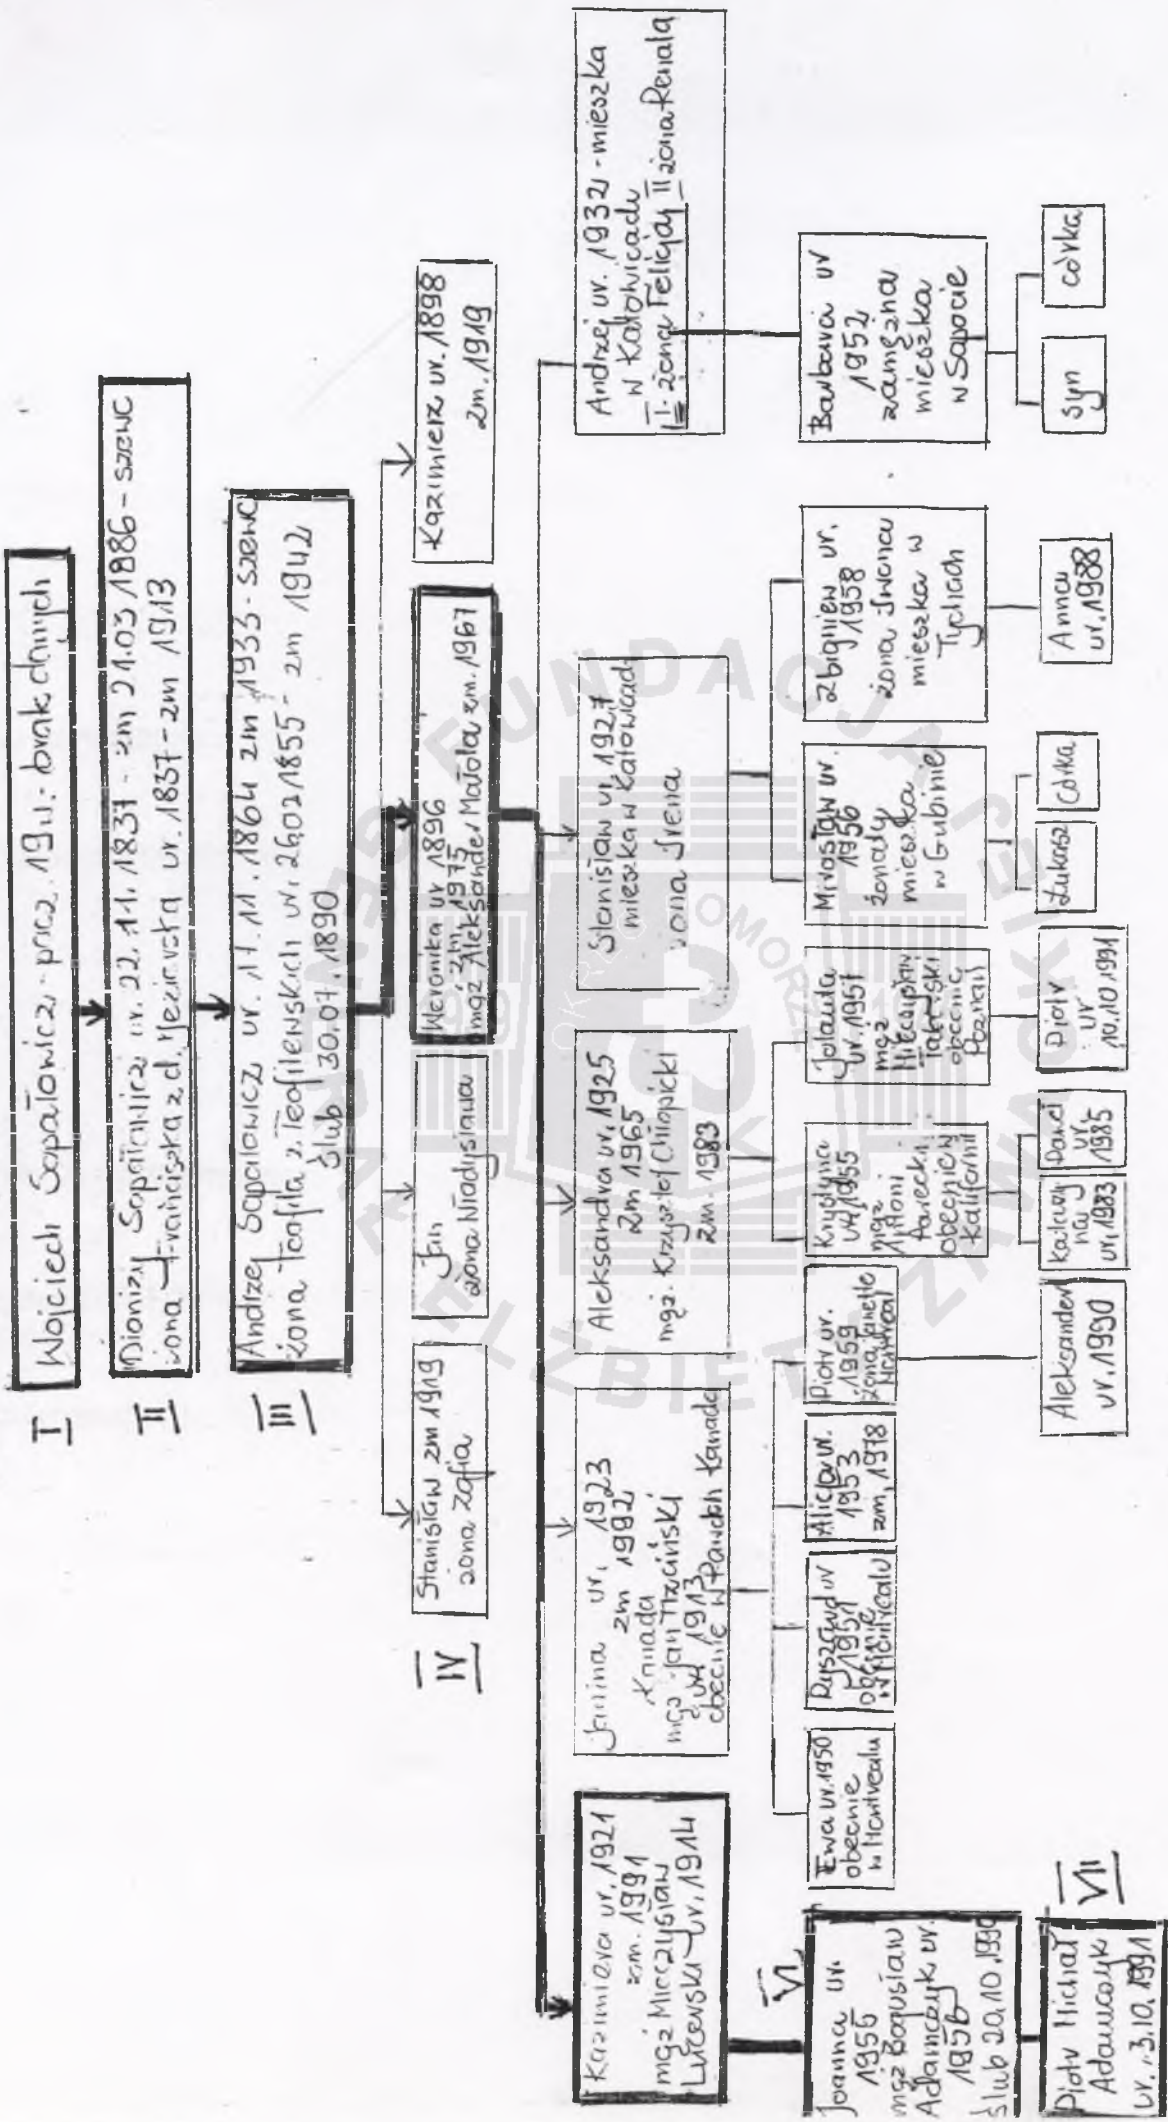 I
Wojciech Sopałowicz - pracz. 19 w. - brak danych
II
Dionizy Sopałowicz ur. 22.11.1837 - zm 21.03.1886 - szewc
żona Franciszka z d. ur. 1837 - zm 1913
III
Andrzej Sopałowicz ur. 17.11.1864 zm 1933 - szewc
żona Teofila z Teofilewskich ur. 26.02.1855 - zm 1942
ślub 30.07.1890
IV
Stanisław zm 1919
żona Zofia
Jan
żona Władysława
Weronika ur 1896
zm. 1975
mąż Aleksander Matola zm. 1967
Kazimierz ur. 1898
zm. 1919
Kazimiera ur. 1921
zm. 1991
mąż Mieczysław
ur. 1914
Janina ur. 1923
zm 1992
Kanada
mąż Jan Trzciński
ur 1913
obecnie w Kanada
Aleksandra ur. 1925
zm 1965
mąż. Krzysztof Chłopicki
zm. 1983
Stanisław ur 1927
mieszka w Katowicach
żona Irena
Andrzej ur. 1932 - mieszka
w Katowicach
I - żona Felicja II żona Renata
VI
Joanna ur.
1955
mąż Bogusław
Adamczyk ur.
1956
ślub 20.10.1990
Ewa ur. 1950
obecnie
w Montrealu
Ryszard ur
1951
obecnie
w Montrealu
Alicja ur.
1953
zm. 1978
Piotr ur.
1959
żona Janette
Montreal
Krystyna
ur. 1955
mąż
obecnie w
Kalifornii
Jolanta
ur. 1957
mąż
obecnie
Poznań
Mirosław ur.
1956
żonaty
mieszka
w Gubinie
Zbigniew ur.
1958
żona Iwona
mieszka w
Tychach
Barbara ur
1952
zamężna
mieszka
w Sopocie
VII
Piotr Michał
Adamczyk
ur. 3.10.1991
Aleksander
ur. 1990
Katarzyna
ur. 1983
Daniel
ur.
1985
Piotr
ur
10.10.1991
Łukasz
Córka
Anna
ur. 1988
syn
córka
FUNDACJA
GENERAŁ ELŻBIETY ZAWACKIEJ